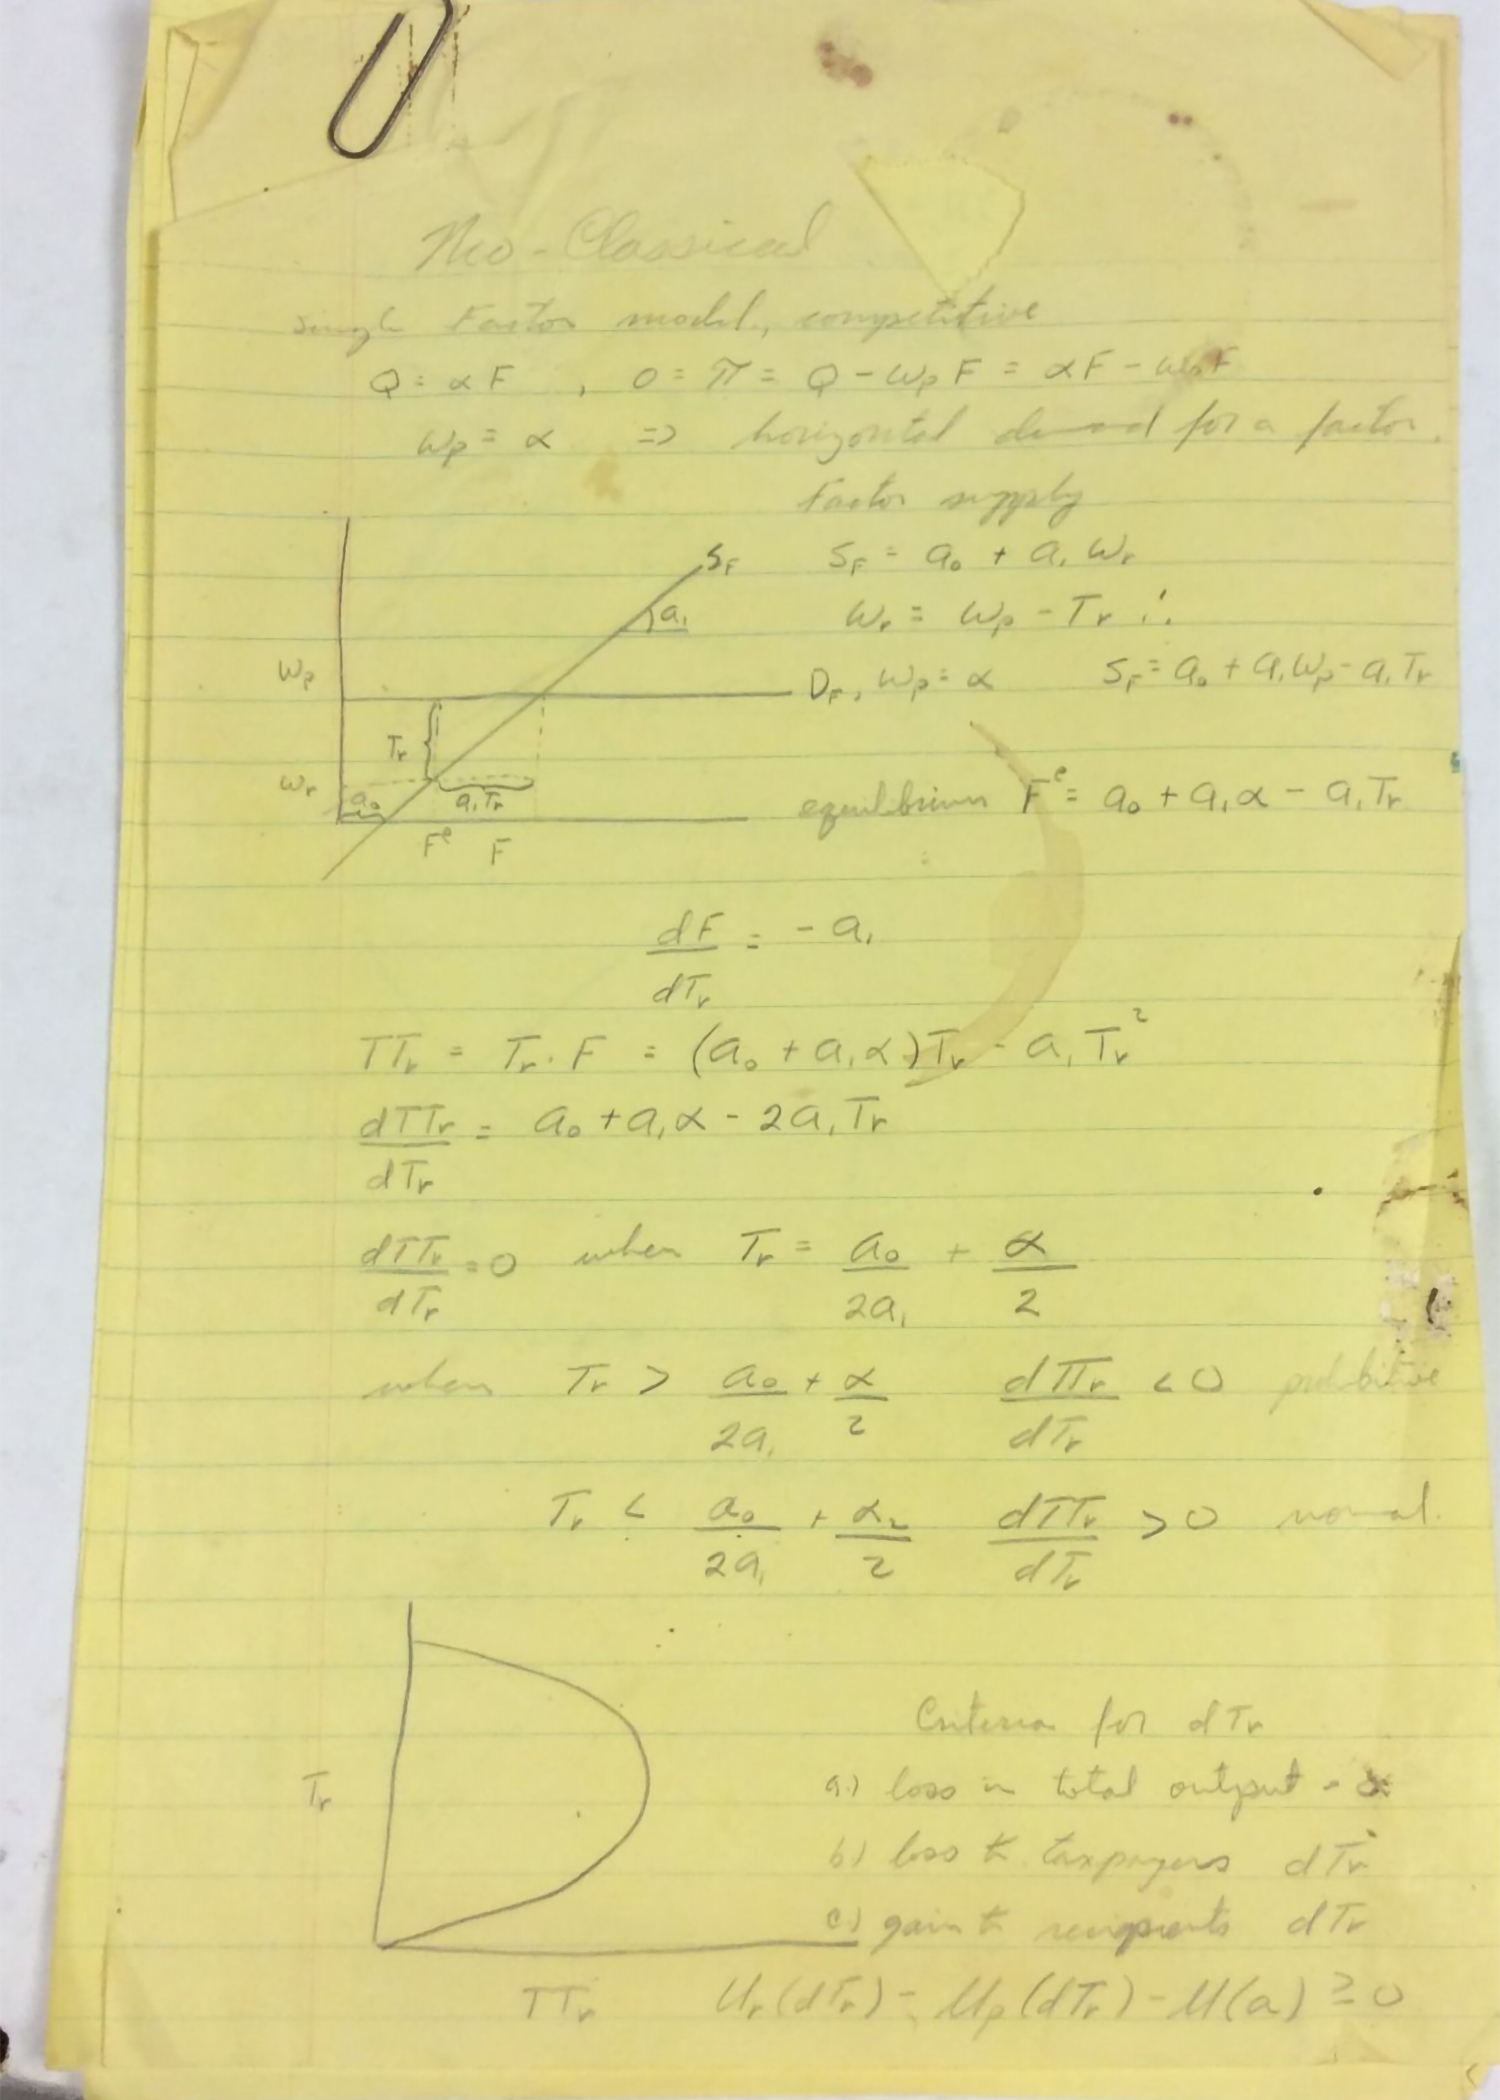 Neo-Classical
Single Factor model, competitive
Q = αF , 0 = π = Q - wₚF = αF - wₚF
wₚ = α ⇒ horizontal demand for a factor.
Factor supply
S_F S_F = a₀ + a₁ Wᵣ
a₁ Wᵣ = Wₚ - Tᵣ ∴
Wₚ D_F, Wₚ = α S_F = a₀ + a₁Wₚ - a₁Tᵣ
Tᵣ
Wᵣ a₀ a₁Tᵣ equilibrium Fᵉ = a₀ + a₁α - a₁Tᵣ
Fᵉ F
dF/dTᵣ = - a₁
TTᵣ = Tᵣ · F = (a₀ + a₁α)Tᵣ - a₁Tᵣ²
dTTᵣ/dTᵣ = a₀ + a₁α - 2a₁Tᵣ
dTTᵣ/dTᵣ = 0 when Tᵣ = a₀/2a₁ + α/2
when Tᵣ > a₀/2a₁ + α/2 dTTᵣ/dTᵣ < 0 prohibitive
Tᵣ < a₀/2a₁ + α/2 dTTᵣ/dTᵣ > 0 normal.
Criteria for dTᵣ
Tᵣ a.) loss in total output -
b) loss to taxpayers dTᵣ
c) gain to recipients dTᵣ
TTᵣ Uᵣ(dTᵣ) - Uₚ(dTᵣ) - U(a) ≥ 0